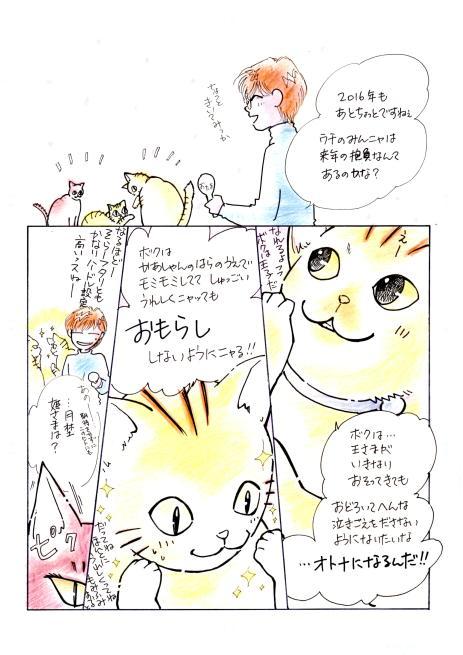 2016年も
あとちょっとですねぇ
ウチのみんニャは
来年の抱負なんて
あるのかな？
ちょっと
きいてみっか
えー
ボクは…
王さまが
いきなり
おそってきても
おどろいてへんな
泣きごえをださない
ようにはないたいな
…オトナになるんだ!!
なれるょフフ
ボクは王子だ
ボクは
かあしゃんのはらのうえで
モミモミしてて しゅっごい
うれしくニャっても
おもらし
しないようにニャる!!
なるほどー
そら～フタリとも
かなりハードル
高いっスねー
あの…
…月埜
姫さまは？
ピク